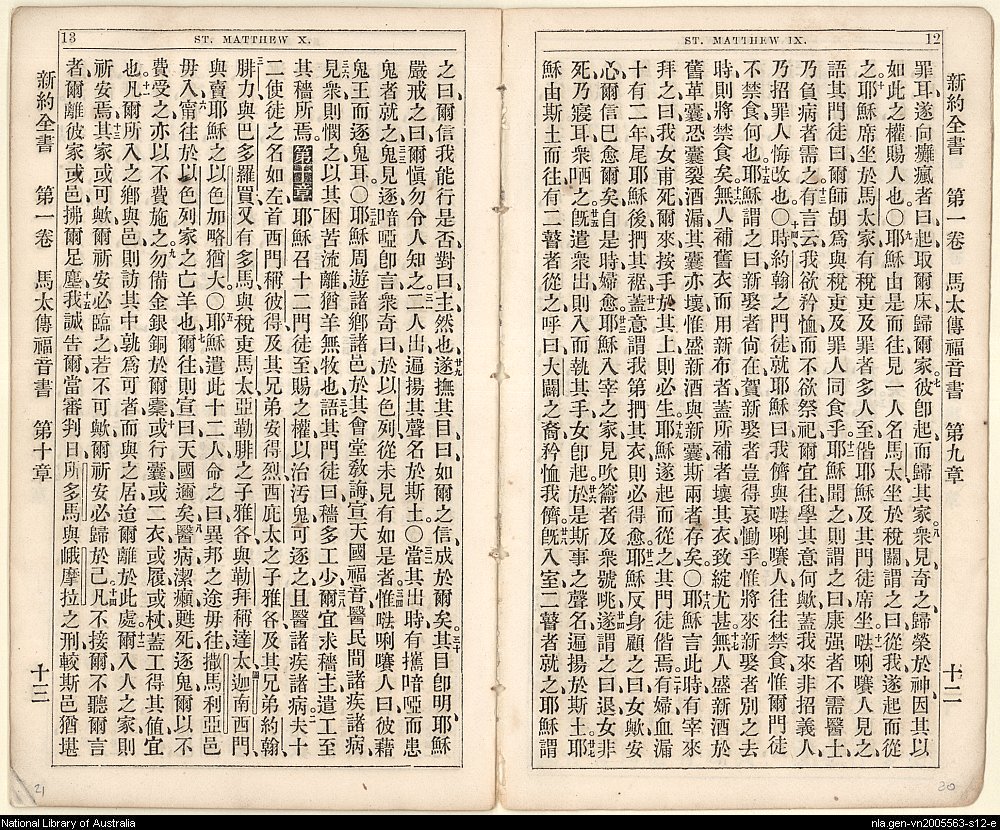 12
ST. MATTHEW IX.
新約全書 第一卷 馬太傳福音書 第九章 十二
罪耳、遂向癱瘋者曰、起取爾床歸爾家、彼卽起而歸其家、衆見奇之、歸榮於神、因其以
如此之權賜人也。〇耶穌由是而往、見一人名馬太、坐於稅關、謂之曰、從我、遂起而從
之、耶穌席坐於馬太家、有稅吏及罪者多人至、偕耶穌及其門徒席坐、唎人見之、
語其門徒曰、爾師胡爲與稅吏及罪人同食乎、耶穌聞之、則謂之曰、康强者不需醫士、
乃負病者需之、有言云、我欲矜恤、而不欲祭祀、爾宜往學其意何歟、蓋我來非招義人、
乃招罪人悔改也。〇時約翰之門徒就耶穌曰、我儕與唎人往往禁食、惟爾門徒
不禁食何也、耶穌謂之曰、新娶者尙在、賀新娶者豈得哀慟乎、惟將來新娶者別之去、
時則將禁食矣、無人補舊衣而用新布者、蓋所補者壞其衣、致綻尤甚、無人盛新酒於
舊革囊、恐囊裂酒漏、其囊亦壞、惟盛新酒與新囊、斯兩者存矣。〇耶穌言此時、有宰來
拜之曰、我女甫死、爾來按手於其上、則必生、耶穌遂起而從之、其門徒偕焉、有婦血漏
十有二年、尾耶穌後、捫其裾、蓋意謂我第捫其衣則必得愈、耶穌反身顧之曰、女歟安
心、爾信已愈爾矣、自是時婦愈、耶穌入宰之家、見吹籥者及衆號咷、遂謂之曰、退、女非
死、乃寢耳、衆哂之、旣遣衆出、則入而執其手、女卽起、於是斯事之聲名遍揚於斯土、耶
穌由斯土而往、有二瞽者從之、呼曰、大闢之裔、矜恤我儕、旣入室、二瞽者就之、耶穌謂
13
ST. MATTHEW X.
之曰、爾信我能行是否、對曰、主然也、遂撫其目曰、如爾之信、成於爾矣、其目卽明、耶穌
嚴戒之曰、爾愼勿令人知之、二人出、遍揚其聲名於斯土。〇當其出時、有攜喑啞而患
鬼者就之、鬼見逐、喑啞卽言、衆奇曰、於以色列從未見有如是者、惟唎人曰、彼藉
鬼王而逐鬼耳。〇耶穌周遊諸鄕諸邑、於其會堂敎誨、宣天國福音、醫民間諸疾諸病、
見衆則憫之、以其困苦流離、猶羊無牧也、語其門徒曰、穡多工少、爾宜求穡主遣工至
其穡所焉。第十章 耶穌召十二門徒至、賜之權以治汚鬼、可逐之、且醫諸疾諸病、夫十
二使徒之名如左、首西門稱彼得、及其兄弟安得烈、西庇太之子雅各、及其兄弟約翰、
腓力與巴多羅買、又有多馬與稅吏馬太、亞勒腓之子雅各、與勒拜稱達太、迦南西門、
與賣耶穌之以色加畧猶大。〇耶穌遣此十二人、命之曰、異邦之途毋往、撒馬利亞邑
毋入、甯往於以色列家之亡羊也、爾往則宣曰、天國邇矣、醫病、潔癩、甦死、逐鬼、爾以不
費受之、亦以不費施之、勿備金銀銅於爾橐、或行囊、或二衣、或履、或杖、蓋工得其値宜
也、凡爾所入之鄕與邑、則訪其中孰爲可者而與之居、迨爾離於此處、爾入人之家、則
祈安焉、其家或可歟、爾祈安必臨之、若不可歟、爾祈安必歸於己、凡不接爾不聽爾言
者、爾離彼家或邑、拂爾足塵、我誠告爾、當審判日、所多馬與峨摩拉之刑、較斯邑猶堪
新約全書 第一卷 馬太傳福音書 第十章 十三
20
21
National Library of Australia
nla.gen-vn2005563-s12-e